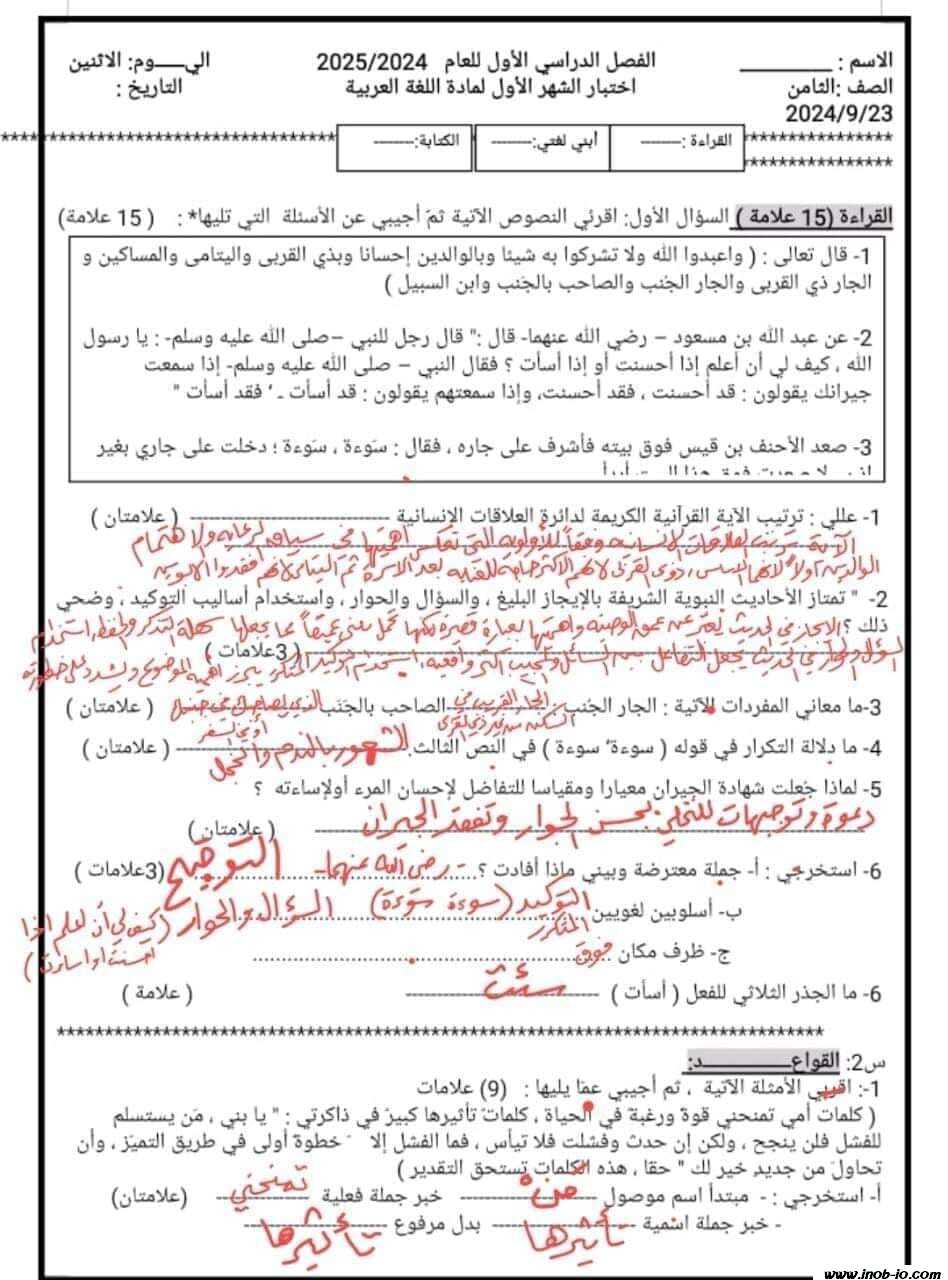 الاسم : ________ الفصل الدراسي الأول للعام 2025/2024 اليـــــوم: الاثنين
الصف :الثامن اختبار الشهر الأول لمادة اللغة العربية التاريخ :
2024/9/23
القراءة :-------- أبني لغتي:-------- الكتابة:--------
القراءة (15 علامة ) السؤال الأول: اقرئي النصوص الآتية ثمّ أجيبي عن الأسئلة التي تليها* : ( 15 علامة)
1- قال تعالى : ( واعبدوا الله ولا تشركوا به شيئا وبالوالدين إحسانا وبذي القربى واليتامى والمساكين و
الجار ذي القربى والجار الجُنب والصاحب بالجَنب وابن السبيل )
2- عن عبد الله بن مسعود – رضي الله عنهما- قال :" قال رجل للنبي –صلى الله عليه وسلم- : يا رسول
الله ، كيف لي أن أعلم إذا أحسنت أو إذا أسأت ؟ فقال النبي – صلى الله عليه وسلم- إذا سمعت
جيرانك يقولون : قد أحسنت ، فقد أحسنت، وإذا سمعتهم يقولون : قد أسأت ـ ‘ فقد أسأت "
3- صعد الأحنف بن قيس فوق بيته فأشرف على جاره ، فقال : سَوءة ، سَوءة ؛ دخلت على جاري بغير
1- عللي : ترتيب الآية القرآنية الكريمة لدائرة العلاقات الإنسانية -------- ( علامتان )
الآية العلاقات الإنسانية وفقاً للأولوية التي تعكس أهميتها في سياق الرعاية والاهتمام
الوالدين أولاً لأنهما الأساس، ذوي القربى لأنهم الأكثر حاجة للعناية بعد الأسرة ثم اليتامى لأنهم فقدوا الأبوين
2- " تمتاز الأحاديث النبوية الشريفة بالإيجاز البليغ ، والسؤال والحوار ، واستخدام أساليب التوكيد ، وضحي
ذلك ؟ الإيجاز في الحديث يعبّر عن عمق الوصية وأهميتها بعبارة قصيرة لكنها تحمل معنى عميقاً مما يجعلها سهلة التذكر والحفظ استخدام
السؤال والحوار في الحديث يجعل التفاعل بين السائل والمجيب أكثر واقعية، استخدام التوكيد المتكرر يبرز أهمية الموضوع ويشدد على خطورته
( 3علامات )
3-ما معاني المفردات الآتية : الجار الجُنب الجار القريب في السكن من غير ذي القربى الصاحب بالجَنب الذي يصاحبك في أو في السفر ( علامتان )
4- ما دلالة التكرار في قوله ( سوءة‘ سوءة ) في النص الثالث الشعور بالندم والخجل ( علامتان )
5- لماذا جُعلت شهادة الجيران معيارا ومقياسا للتفاضل لإحسان المرء أولإساءته ؟
دعوة وتوجيهات للتحلي بحسن الجوار وتفقد الجيران ( علامتان )
6- استخرجي : أ- جملة معترضة وبيني ماذا أفادت ؟ - رضي الله عنهما - التوضيح (3علامات )
ب- أسلوبين لغويين التوكيد المتكرر (سوءة سوءة) السؤال والحوار (كيف لي أن أعلم إذا
أحسنت أو أسأت)
ج- ظرف مكان فوق
6- ما الجذر الثلاثي للفعل ( أسأت ) سئت ( علامة )
س2: القواعـــــــــد:
1-: اقرئي الأمثلة الآتية ، ثم أجيبي عمّا يليها : (9) علامات
( كلمات أمي تمنحني قوة ورغبة في الحياة ، كلماتٌ تأثيرها كبيرٌ في ذاكرتي : " يا بني ، مَن يستسلم
للفشل فلن ينجح ، ولكن إن حدث وفشلت فلا تيأس ، فما الفشل إلا خطوة أولى في طريق التميّز ، وأن
تحاول من جديد خير لك " حقا ، هذه الكلمات تستحق التقدير )
أ- استخرجي : - مبتدأ اسم موصول من خبر جملة فعلية تمنحني (علامتان)
- خبر جملة اسمية تأثيرها بدل مرفوع تأثيرها
www.inob-jo.com